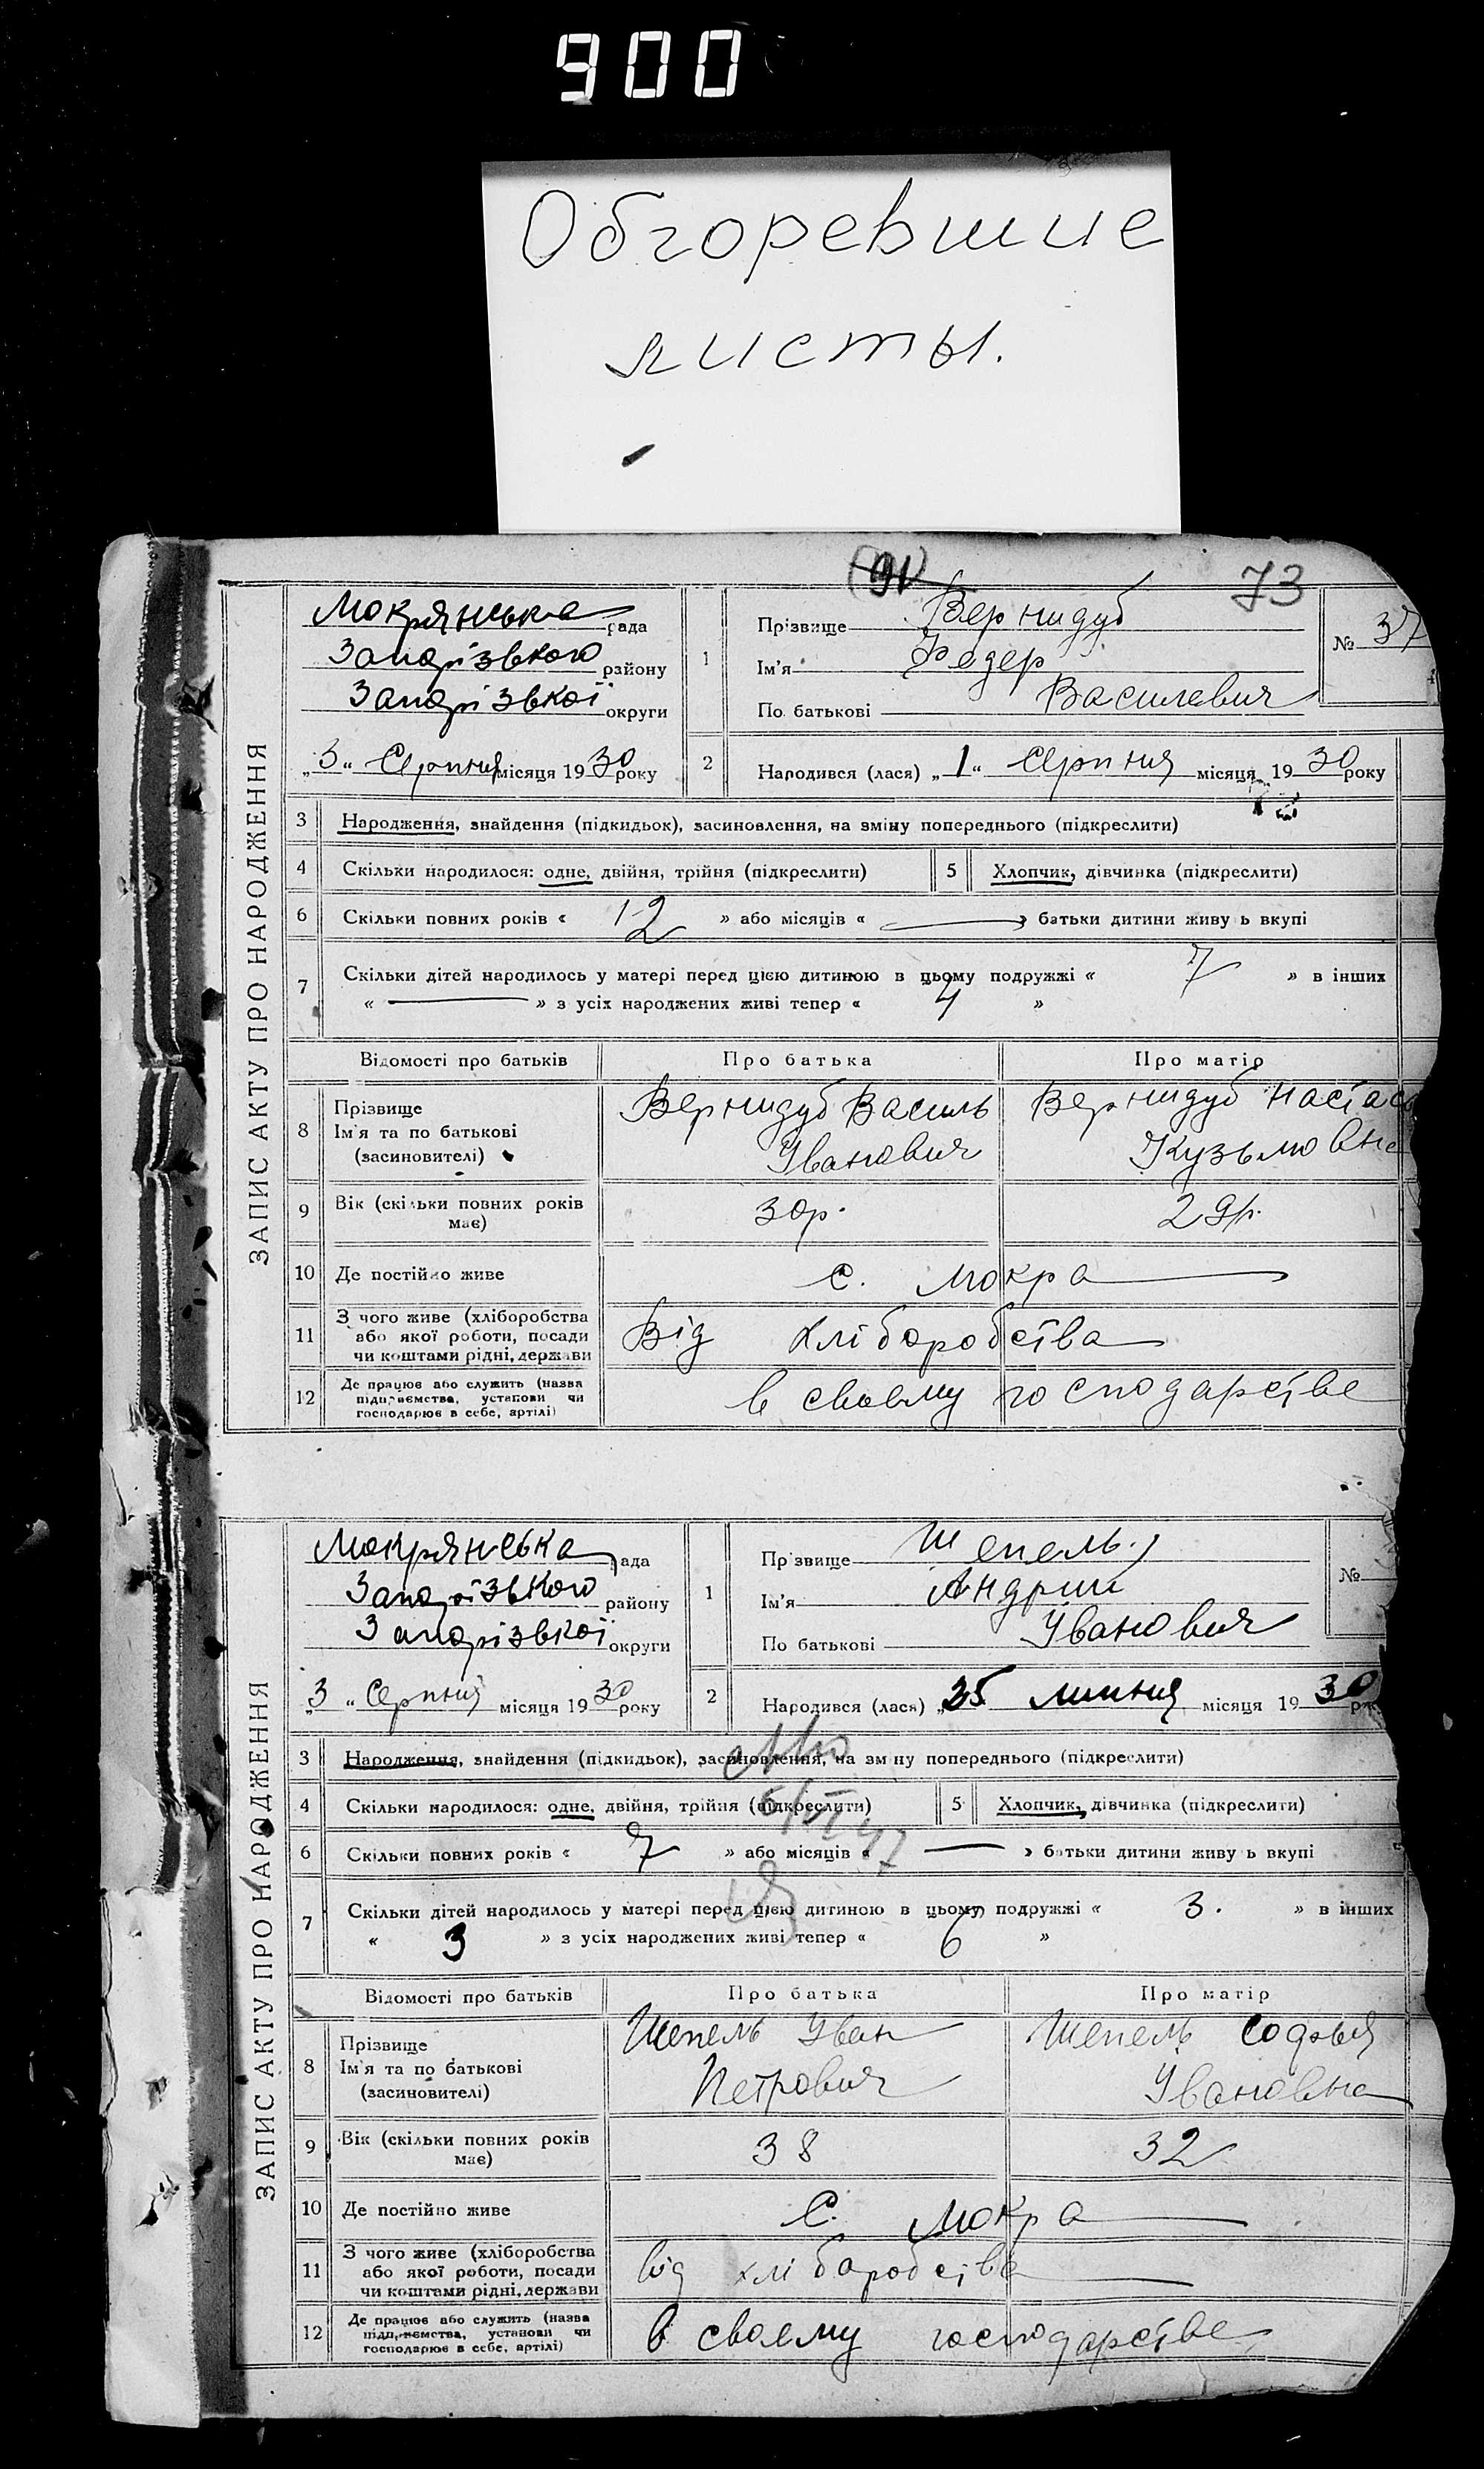 900
Обгоревшие
листы.
73
ЗАПИС АКТУ ПРО НАРОДЖЕННЯ
Мокрянська рада
Запорізького району
Запорізької округи
„3“ Серпня місяця 1930 року
1
Прізвище Вернидуб
Ім'я Федер
По батькові Василевич
№ 37
2
Народився (лася) „1“ Серпня місяця 1930 року
3 Народження, знайдення (підкидьок), засиновлення, на зміну попереднього (підкреслити)
4 Скільки народилося: одне, двійня, трійня (підкреслити) 5 Хлопчик, дівчинка (підкреслити)
6 Скільки повних років « 12 » або місяців « — » батьки дитини живу ь вкупі
7 Скільки дітей народилось у матері перед цією дитиною в цьому подружжі « 7 » в інших
« — » з усіх народжених живі тепер « 4 »
Відомості про батьків Про батька Про матір
8 Прізвище
Ім'я та по батькові
(засиновителі)
Вернидуб Василь
Іванович
Вернидуб Настас
Кузьмовна
9 Вік (скільки повних років
має)
30р.
29р.
10 Де постійно живе с. Мокра
11 З чого живе (хліборобства
або якої роботи, посади
чи коштами рідні, держави
Від хліборобства
12 Де працює або служить (назва
підприємства, установи чи
господарює в себе, артілі)
в своєму господарстве
ЗАПИС АКТУ ПРО НАРОДЖЕННЯ
Мокрянська рада
Запорізького району
Запорізької округи
„3“ Серпня місяця 1930 року
1
Прізвище Шепель
Ім'я Андрий
По батькові Іванович
№
2
Народився (лася) „25 липня місяця 1930 рок
3 Народження, знайдення (підкидьок), засиновлення, на зміну попереднього (підкреслити)
4 Скільки народилося: одне, двійня, трійня (підкреслити) 5 Хлопчик, дівчинка (підкреслити)
6 Скільки повних років « 7 » або місяців « — » батьки дитини живу ь вкупі
7 Скільки дітей народилось у матері перед цією дитиною в цьому подружжі « 3. » в інших
« 3 » з усіх народжених живі тепер « 6 »
Відомості про батьків Про батька Про матір
8 Прізвище
Ім'я та по батькові
(засиновителі)
Шепель Іван
Петрович
Шепель Софья
Івановна
9 Вік (скільки повних років
має)
38
32
10 Де постійно живе С. Мокра
11 З чого живе (хліборобства
або якої роботи, посади
чи коштами рідні, держави
від хліборобства
12 Де працює або служить (назва
підприємства, установи чи
господарює в себе, артілі)
в своєму господарстве